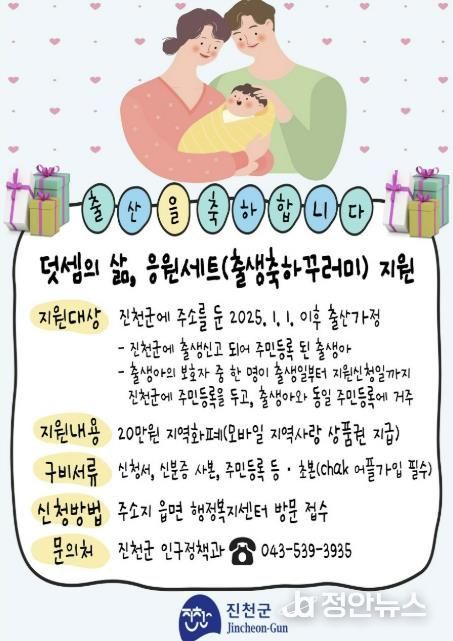 출산을축하합니다
덧셈의 삶, 응원세트(출생축하꾸러미) 지원
지원대상 진천군에 주소를 둔 2025. 1. 1. 이후 출산가정
- 진천군에 출생신고 되어 주민등록 된 출생아
- 출생아의 보호자 중 한 명이 출생일부터 지원신청일까지
진천군에 주민등록을 두고, 출생아와 동일 주민등록에 거주
지원내용 20만원 지역화폐(모바일 지역사랑 상품권 지급)
구비서류 신청서, 신분증 사본, 주민등록 등·초본(chak 어플가입 필수)
신청방법 주소지 읍면 행정복지센터 방문 접수
문의처 진천군 인구정책과 ☎ 043-539-3935
진천군
Jincheon-Gun
정안뉴스